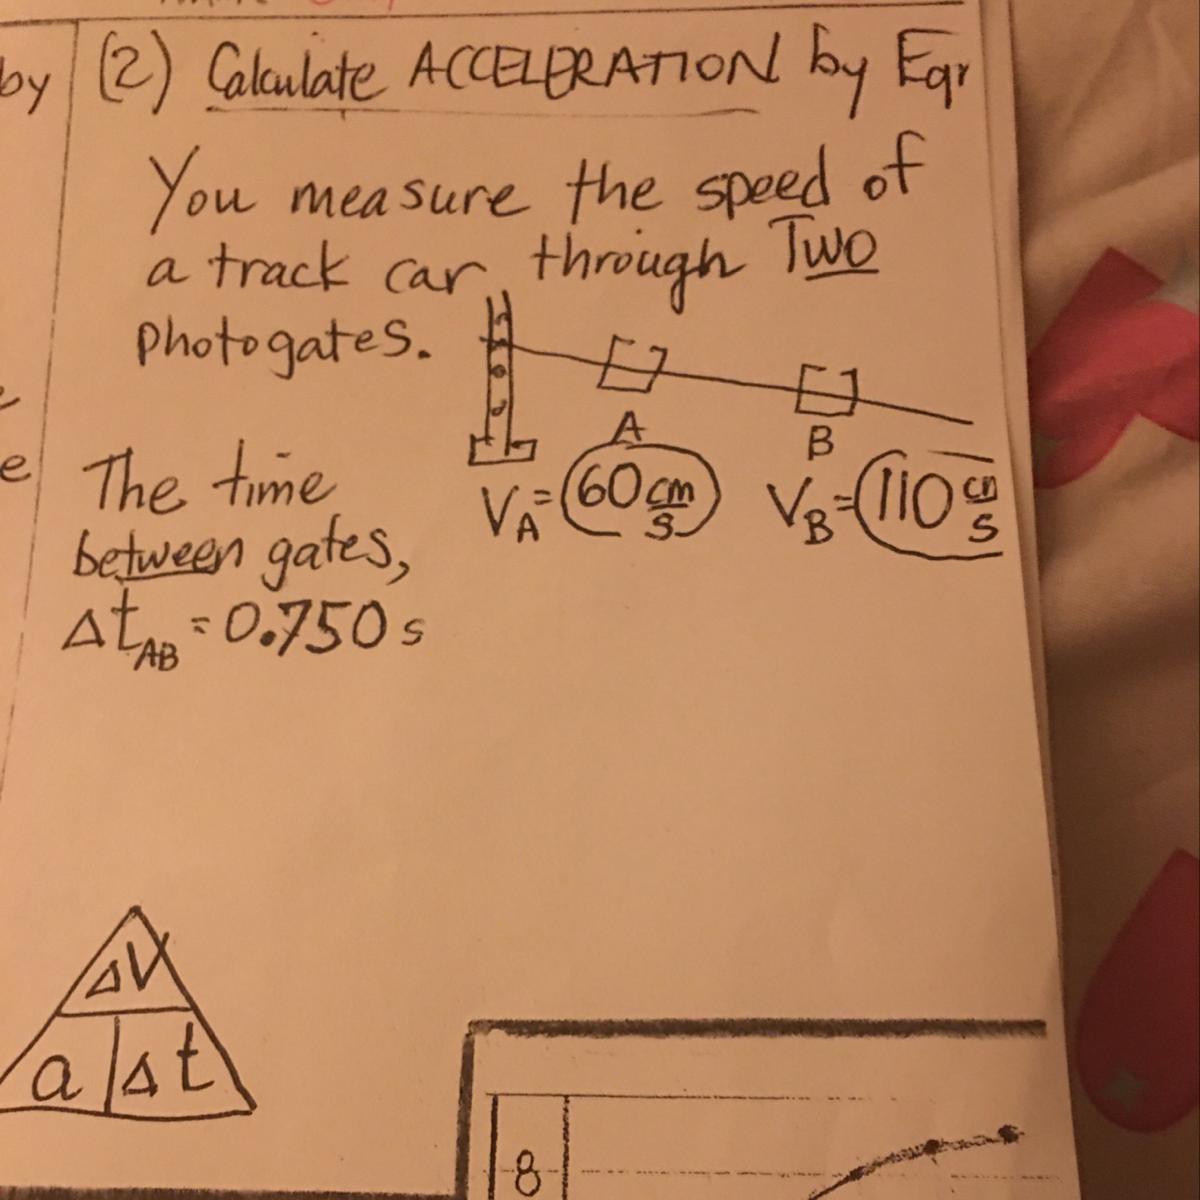 by
(2) Calculate ACCELERATION by Eqn
You measure the speed of
a track car through Two
photogates.
A
B
e
The time
between gates,
Δt_AB = 0.750 s
V_A = 60 cm/s
V_B = 110 cm/s
ΔV
a Δt
8